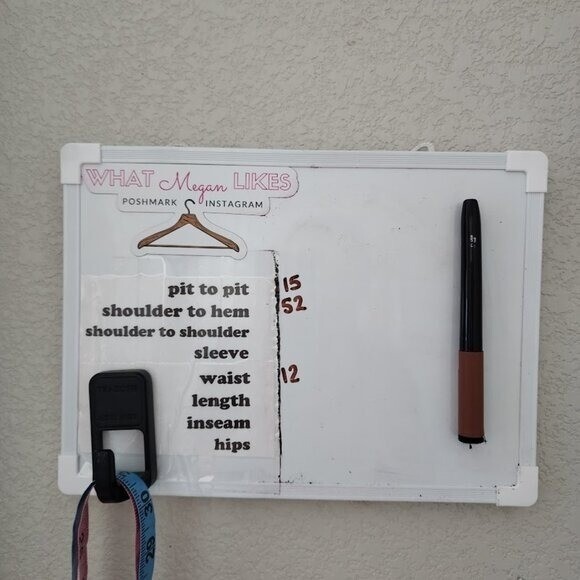 WHAT Megan LIKES
POSHMARK INSTAGRAM
pit to pit 15
shoulder to hem 52
shoulder to shoulder
sleeve
waist 12
length
inseam
hips
30
29